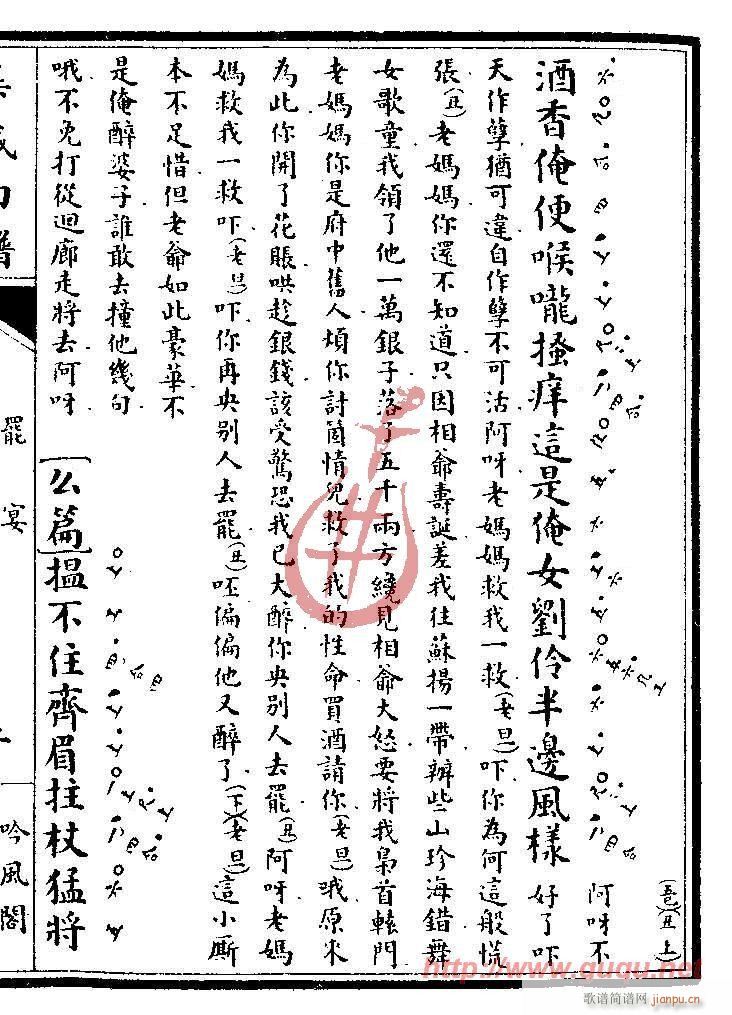 酒香俺便喉嚨搔痒這是俺女劉伶半邊風樣 阿呀不好了吓
(丑上)
天作孽猶可違自作孽不可活阿呀老媽媽救我一救(老旦)吓你為何這般慌
張(丑)老媽媽你還不知道只因相爺壽誕差我往蘇揚一帶辦些山珍海錯舞
女歌童我領了他一萬銀子落了五千兩方纔見相爺大怒要將我梟首轅門
老媽媽你是府中舊人煩你討箇情兒救了我的性命買酒請你(老旦)哦原来
為此你開了花賬哄趁銀錢該受驚恐我已大醉你央别人去罷(丑)阿呀老媽
媽救我一救吓(老旦)吓你再央别人去罷(丑)呸偏偏他又醉了(下)(老旦)這小厮
本不足惜但老爺如此豪華不
是俺醉婆子誰敢去撞他幾句
哦不免打從迴廊走將去阿呀
[么篇]揾不住齊眉拄杖猛將
罷宴
吟風閣
http://www.guqu.net
歌谱简谱网 jianpu.cn